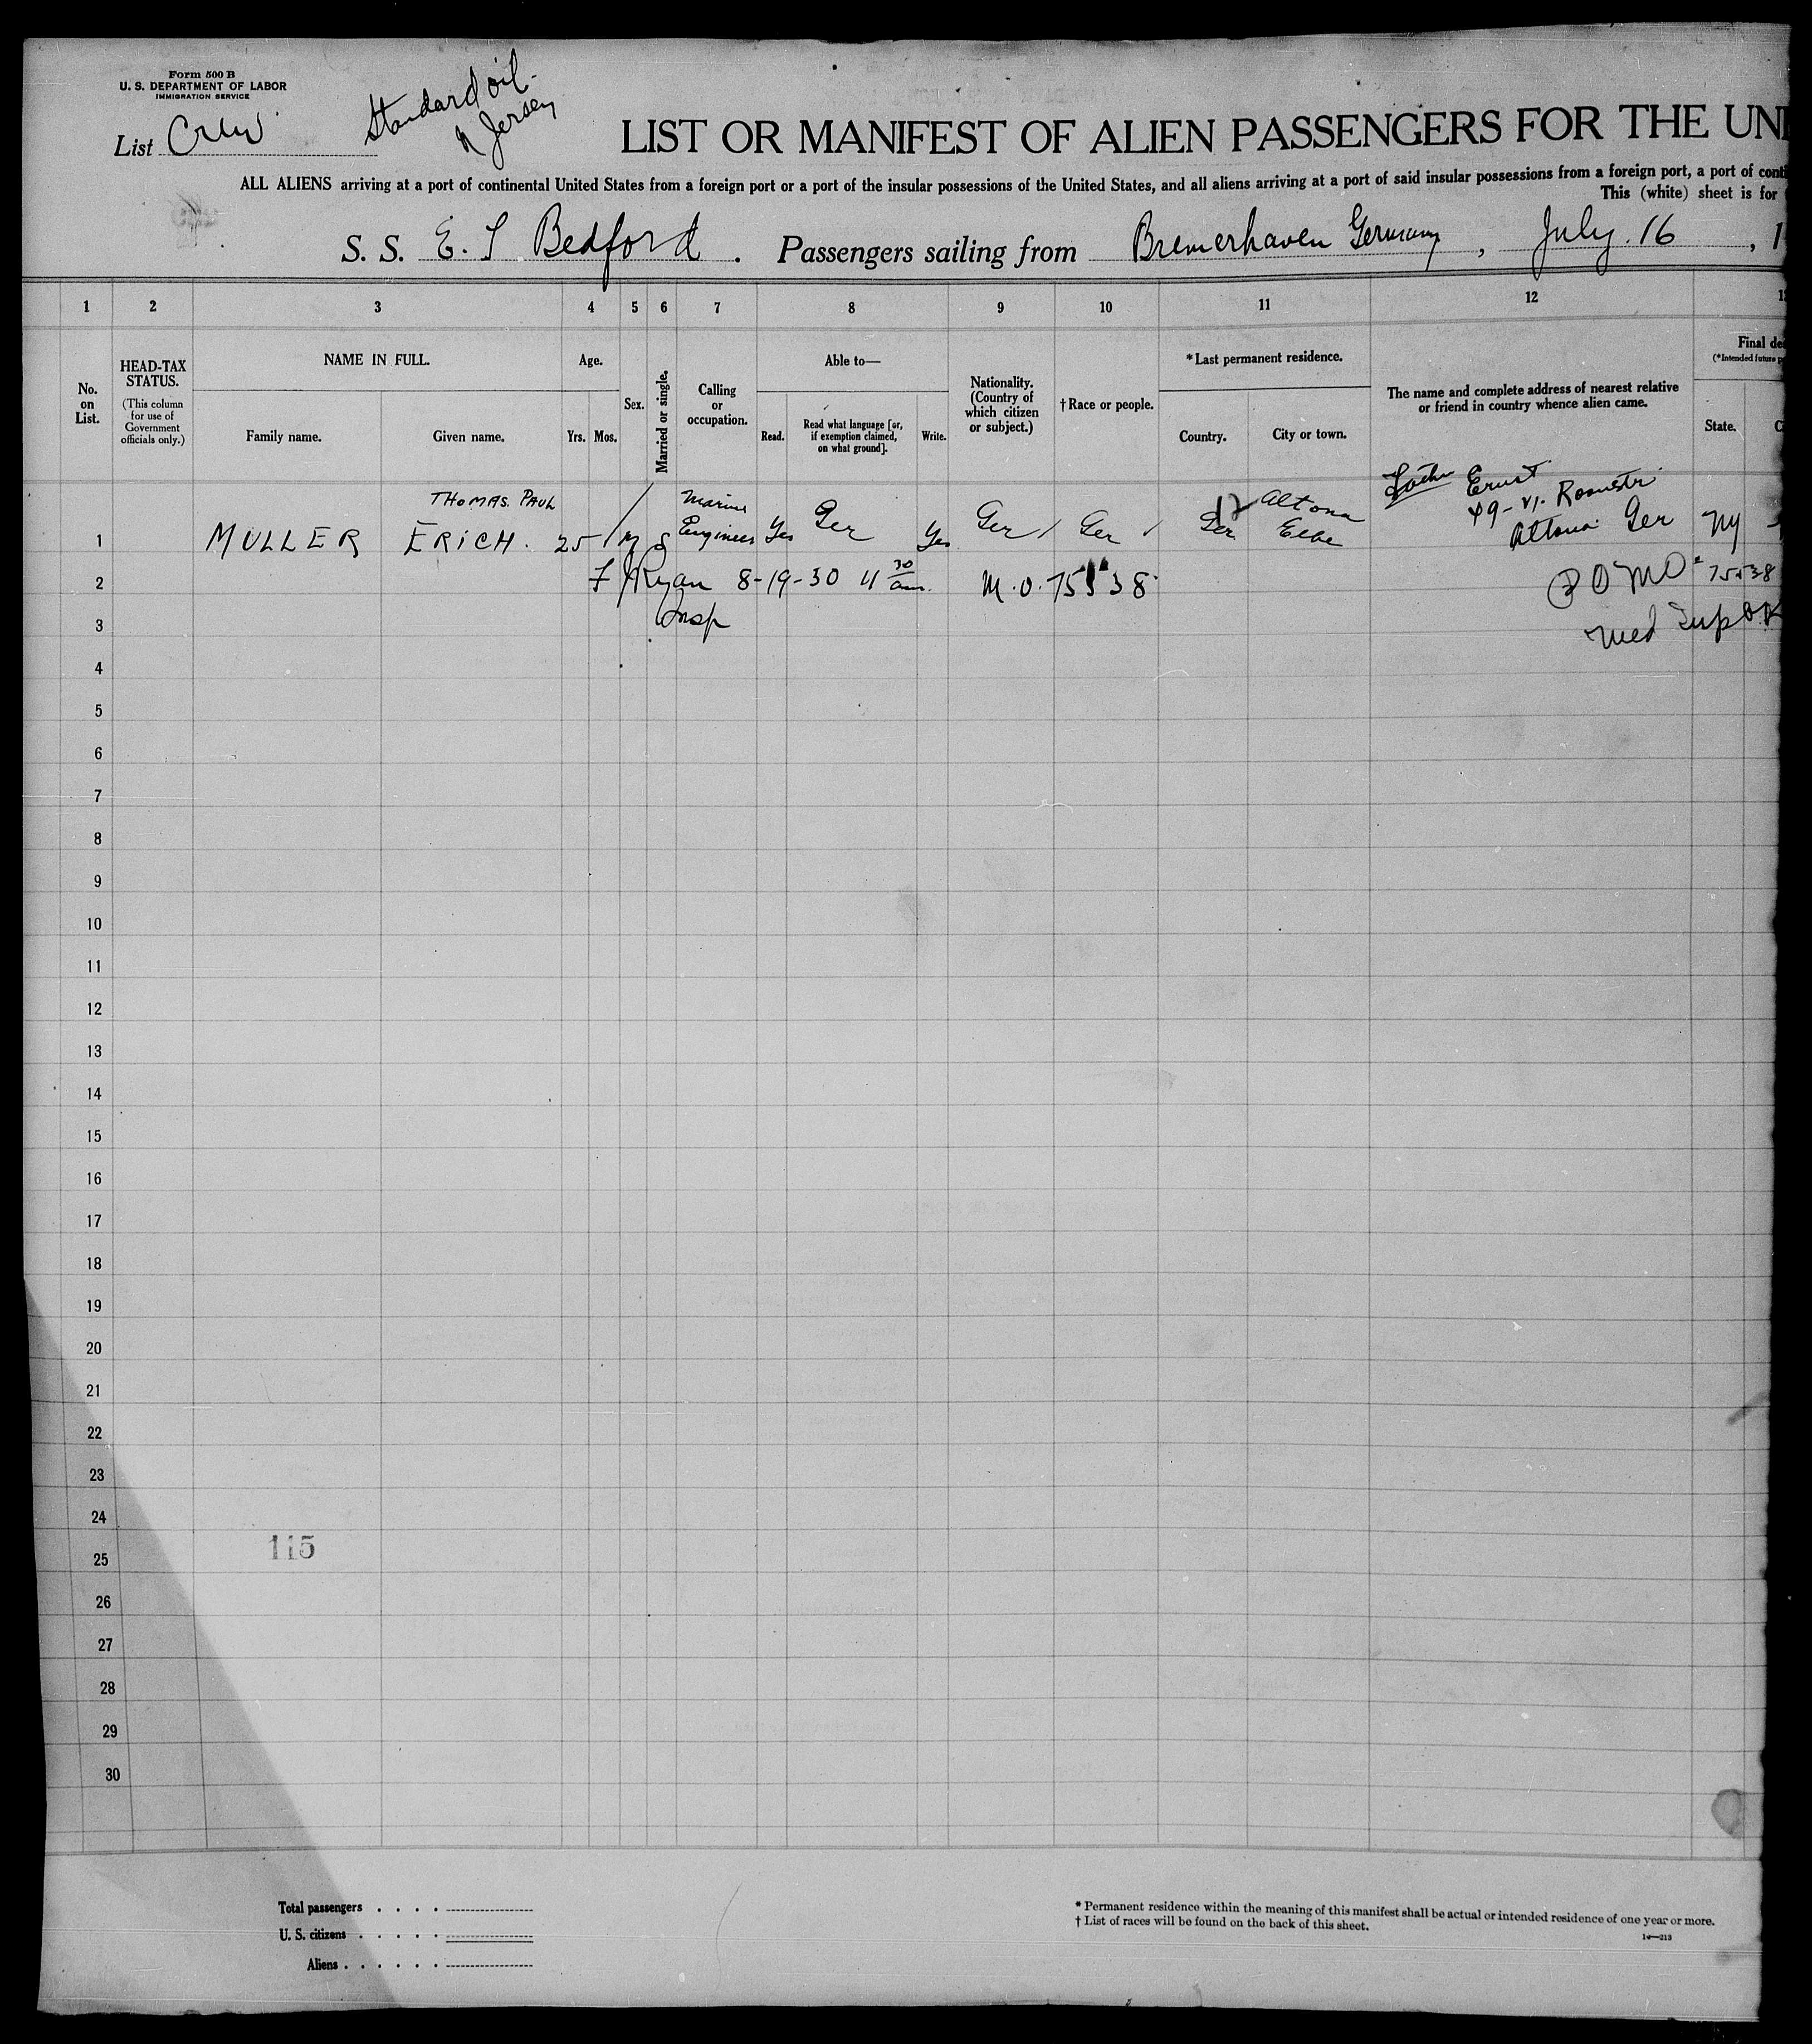 Form 500 B
U. S. DEPARTMENT OF LABOR
IMMIGRATION SERVICE
List Crew
Standard oil
N Jersey
LIST OR MANIFEST OF ALIEN PASSENGERS FOR THE UNI
ALL ALIENS arriving at a port of continental United States from a foreign port or a port of the insular possessions of the United States, and all aliens arriving at a port of said insular possessions from a foreign port, a port of conti
This (white) sheet is for
S. S. E. T Bedford . Passengers sailing from Bremerhaven Germany , July 16 , 1
1 2 3 4 5 6 7 8 9 10 11 12
No. on List.
HEAD-TAX STATUS.
(This column for use of Government officials only.)
NAME IN FULL.
Family name. Given name.
Age.
Yrs. Mos.
Sex.
Married or single.
Calling or occupation.
Able to—
Read. Read what language [or, if exemption claimed, on what ground]. Write.
Nationality. (Country of which citizen or subject.)
† Race or people.
* Last permanent residence.
Country. City or town.
The name and complete address of nearest relative or friend in country whence alien came.
Final des
(*Intended future p
State.
THOMAS. PAUL
1 MULLER ERICH. 25 M S Marine Engineer Yes Ger Yes Ger Ger Ger Altona Elbe
Ernst
Altona Ger NY
2 F J Ryan 8-19-30 11 30 am. M.O. 75538
Insp
P O M O 75538
Med Insp OK
3
4
5
6
7
8
9
10
11
12
13
14
15
16
17
18
19
20
21
22
23
24
115
25
26
27
28
29
30
Total passengers . . . .
U. S. citizens . . . . .
Aliens . . . . . .
* Permanent residence within the meaning of this manifest shall be actual or intended residence of one year or more.
† List of races will be found on the back of this sheet.
14—213